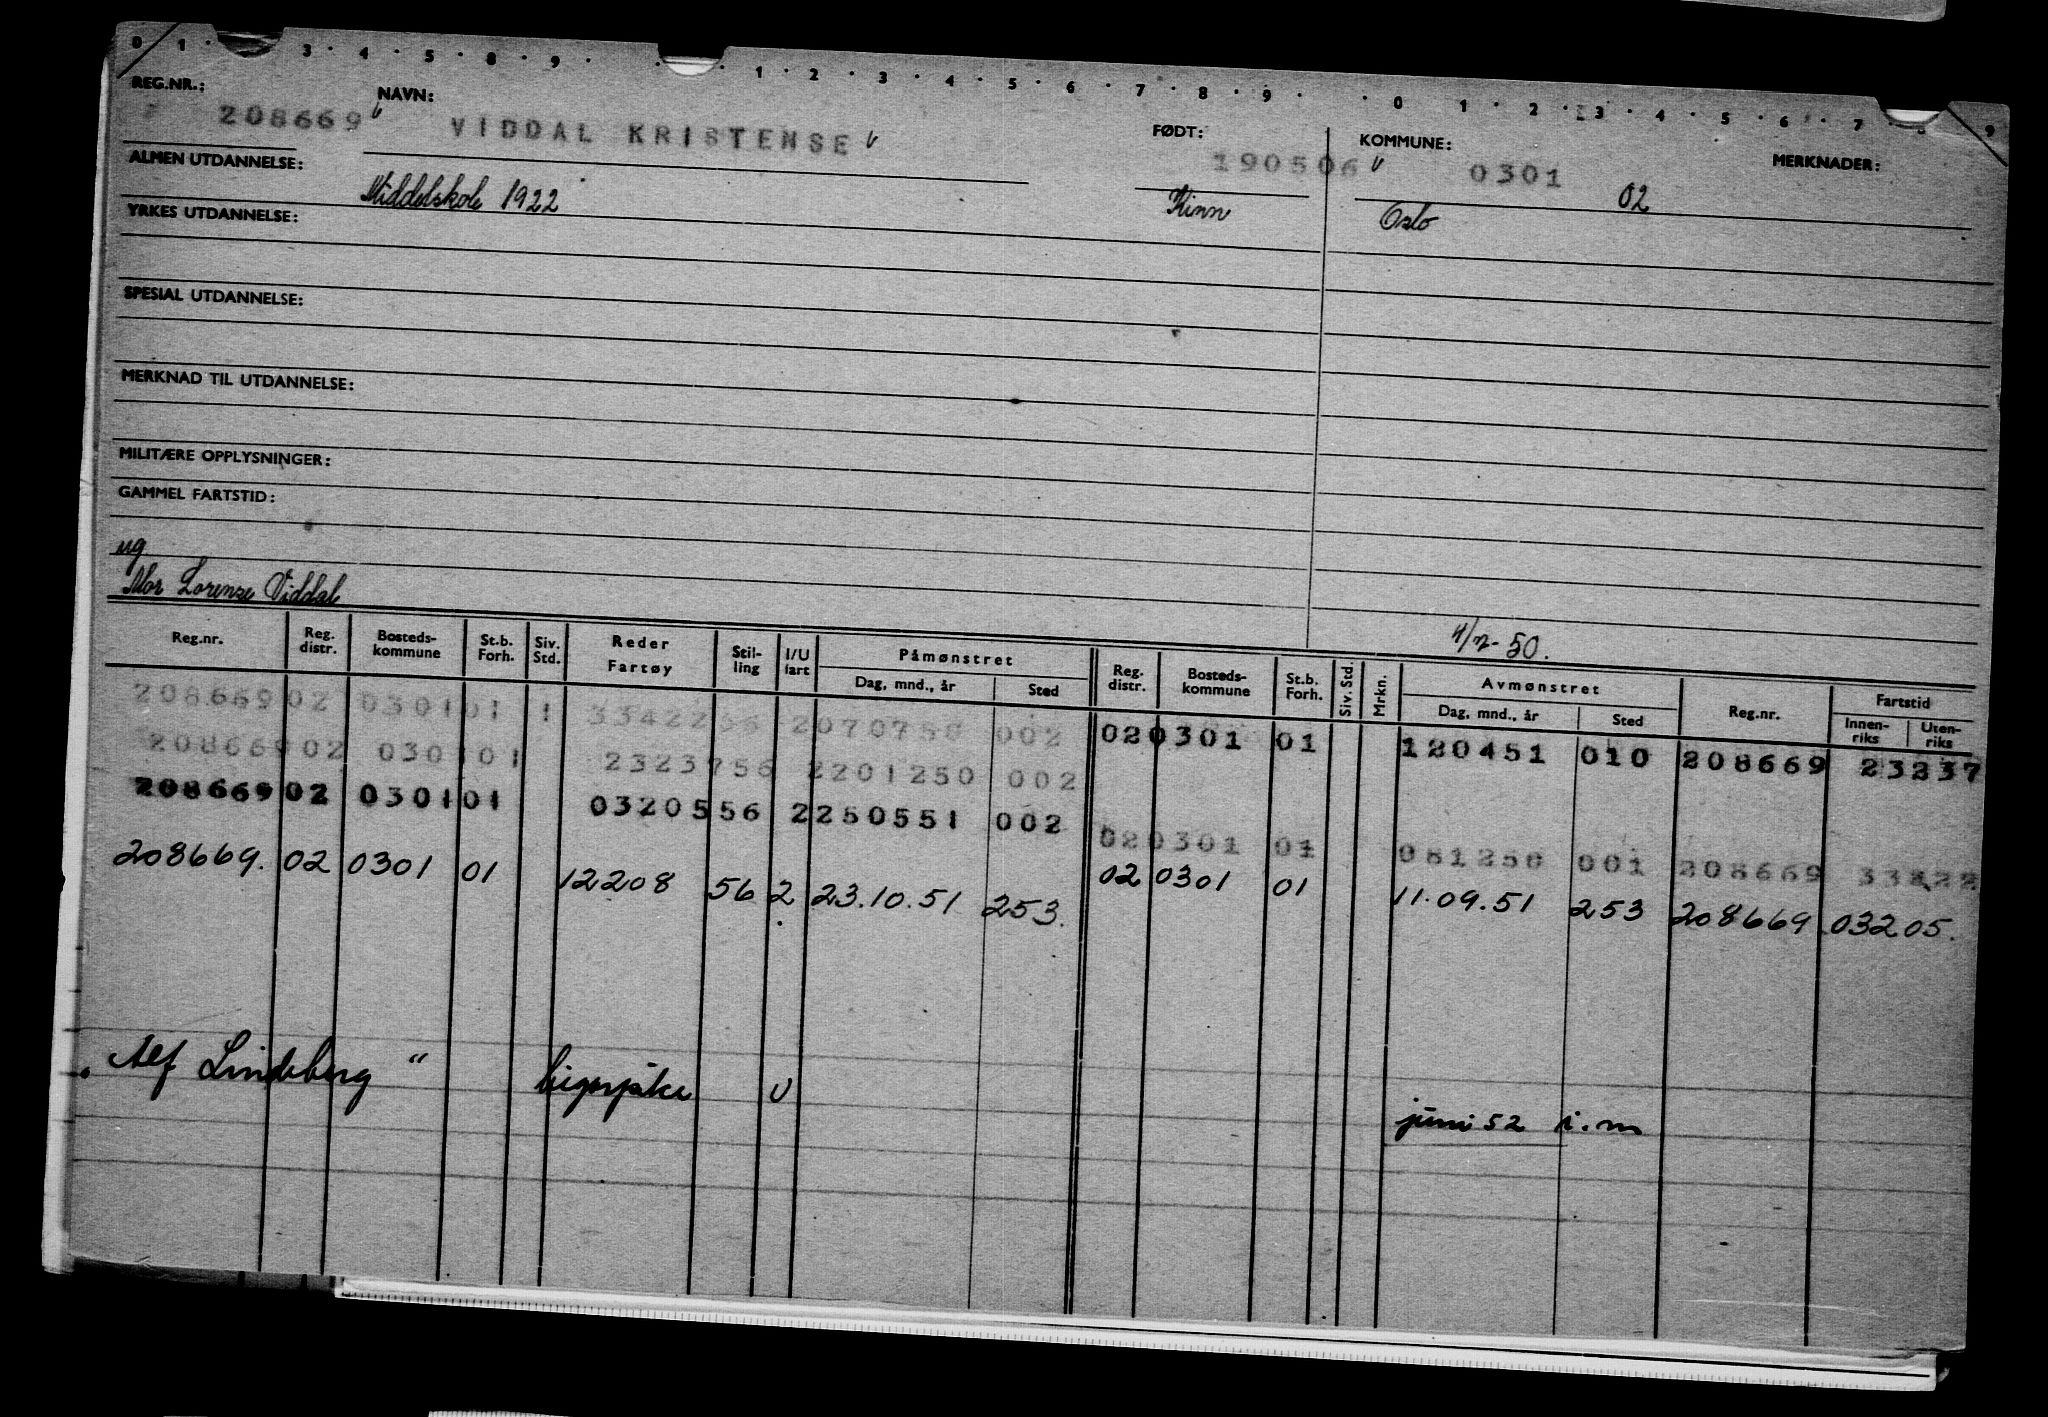 0 1 · 3 · 4 · 5 · 8 · 9 · · · 1 · 2 · 3 · 4 · 5 · 6 · 7 · 8 · 9 · · 0 1 · 2 · 3 · 4 · 5 · 6 · 7 · 9
REG.NR.: NAVN: FØDT: KOMMUNE: MERKNADER:
208669 VIDDAL KRISTENSE 190506 0301 02
ALMEN UTDANNELSE: Middelskole 1922 Kinn Oslo
YRKES UTDANNELSE:
SPESIAL UTDANNELSE:
MERKNAD TIL UTDANNELSE:
MILITÆRE OPPLYSNINGER:
GAMMEL FARTSTID:
ug
Mor Lorenze Viddal
4/7-50.
Reg.nr. Reg. distr. Bosteds-kommune St.b. Forh. Siv. Std. Reder Fartøy Stil-ling I/U fart Påmønstret Dag, mnd., år Sted Reg. distr. Bosteds-kommune St.b. Forh. Siv. Std. Mrkn. Avmønstret Dag, mnd., år Sted Reg.nr. Fartstid Innen-riks Uten-riks
208669 02 0301 01 1 2 070750 002 02 0301 01 120451 010 208669 23237
208669 02 0301 01 23237 56 2 201250 002
208669 02 0301 01 03205 56 2 250551 002 02 0301 01 081250 001 208669
208669. 02 0301 01 12208 56 2 23.10.51 253. 02 0301 01 11.09.51 253 208669 03205.
"Alf Lindeberg" U juni 52 i.m